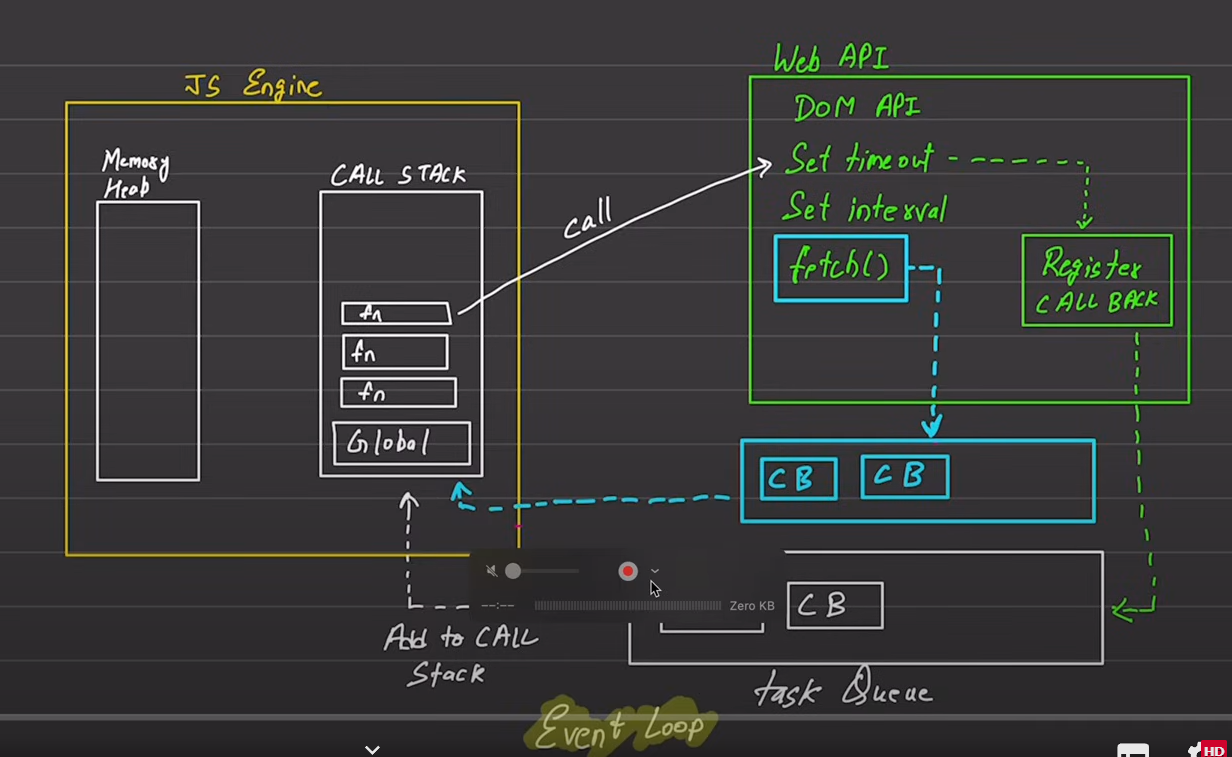 JS Engine
Memory
Heap
CALL STACK
fn
fn
fn
Global
call
Web API
DOM API
Set timeout
Set interval
fetch()
Register
CALL BACK
CB
CB
--:--
Zero KB
CB
Add to CALL
Stack
task Queue
Event Loop
HD